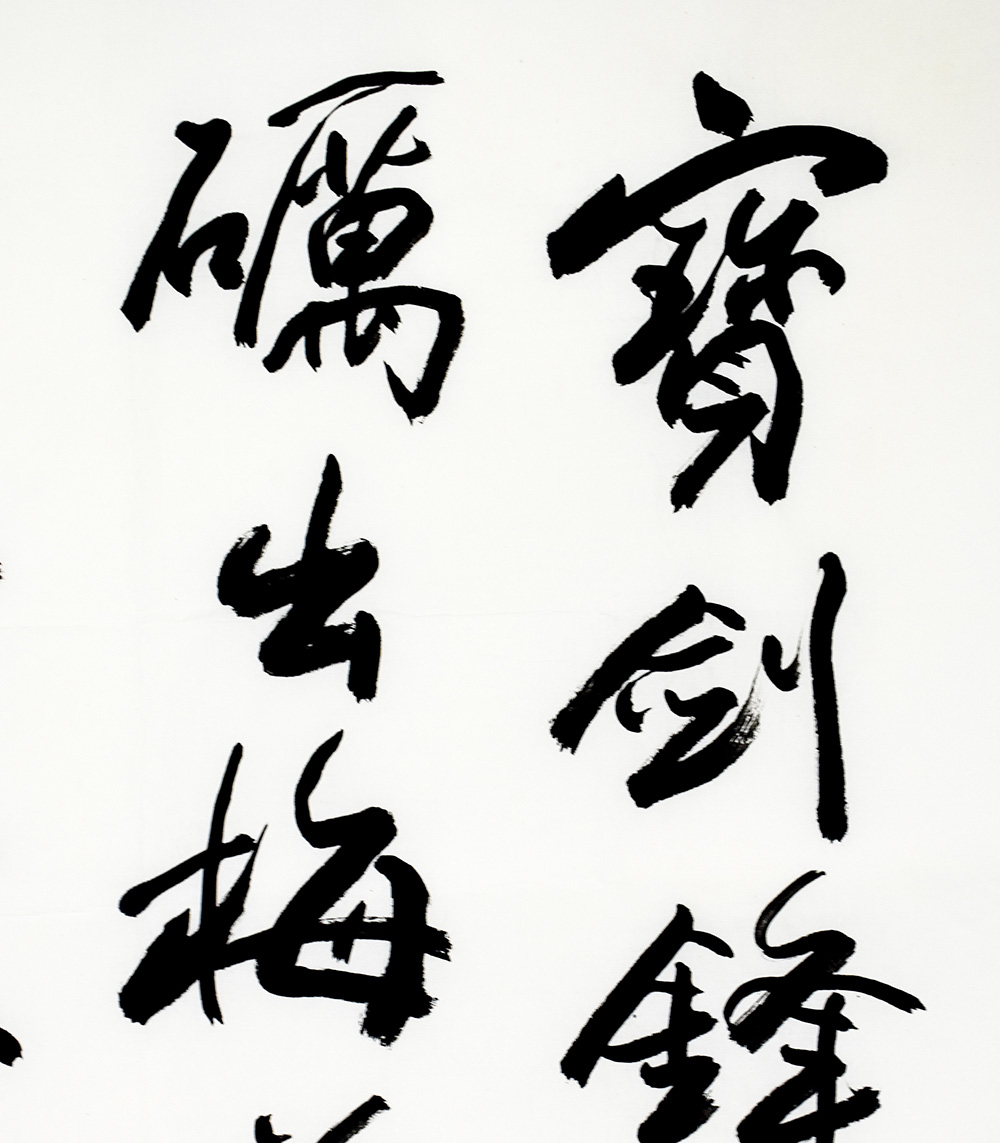 寶劍鋒
礪出梅